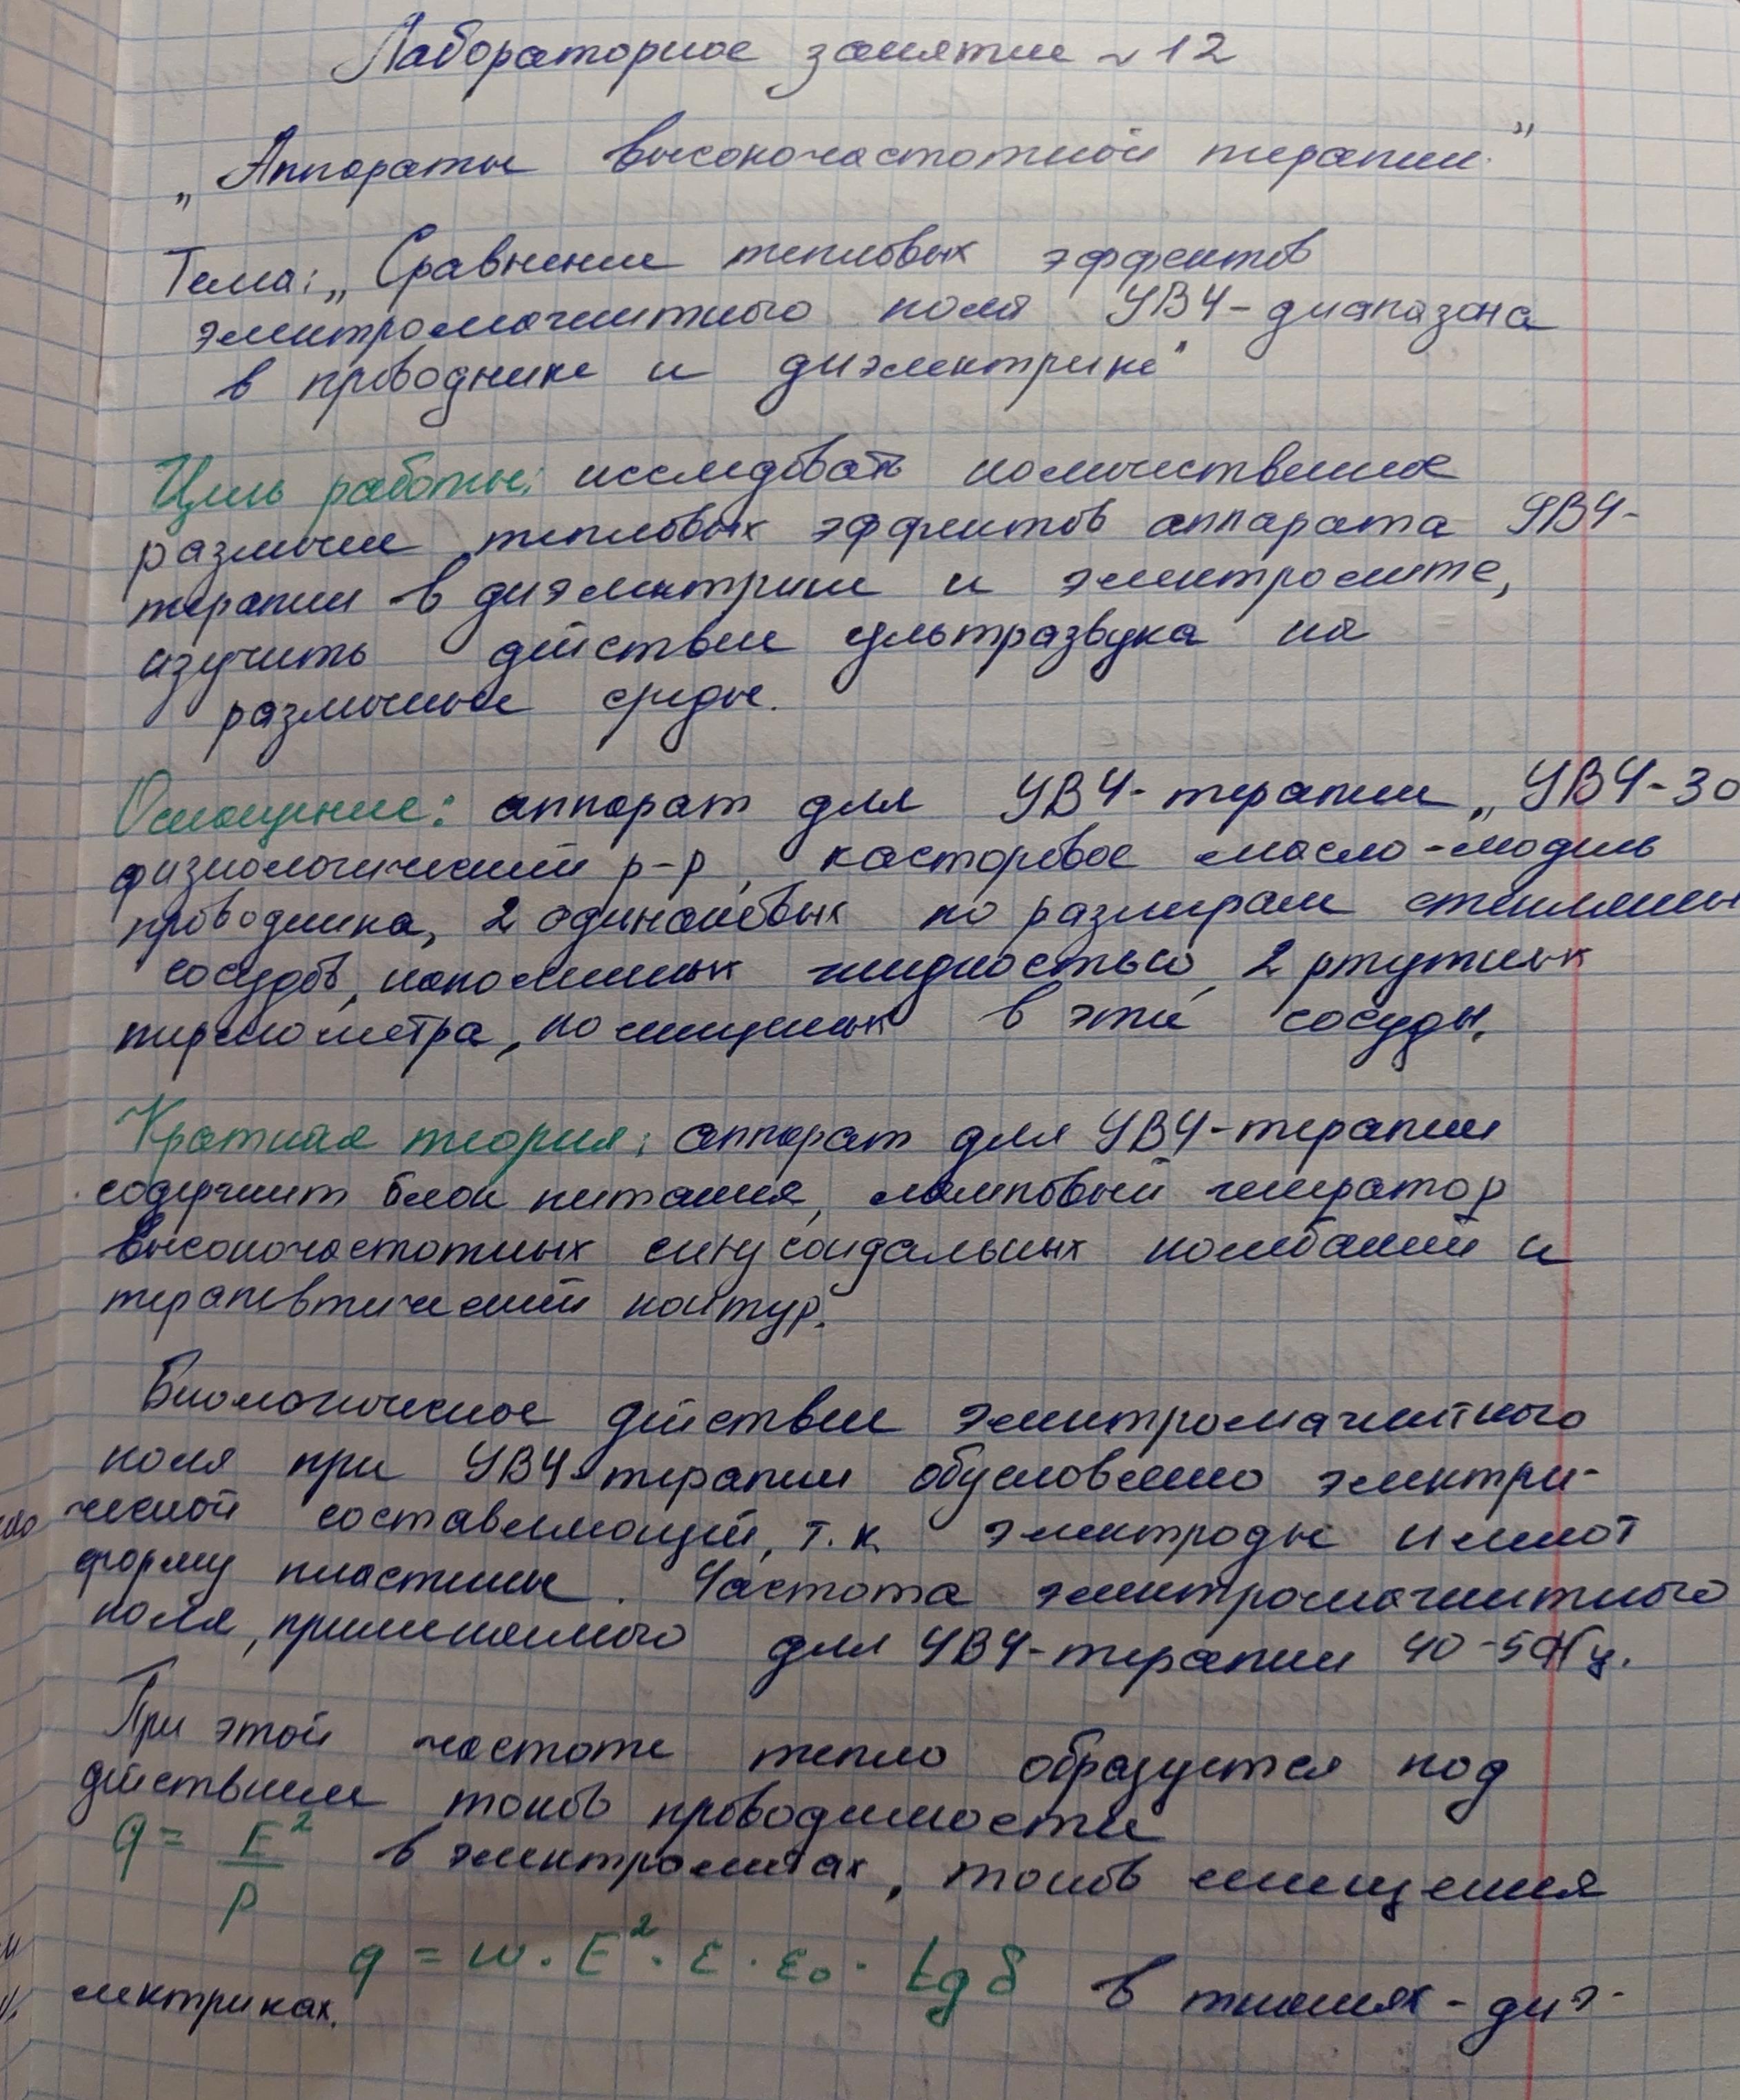 Лабораторное занятие № 12
„Аппараты высокочастотной терапии."
Тема: „Сравнение тепловых эффектов
электромагнитного поля УВЧ-диапазона
в проводнике и диэлектрике"
Цель работы: исследовать количественное
различие тепловых эффектов аппарата УВЧ-
терапии в диэлектрике и электролите,
изучить действие ультразвука на
различные среды.
Оснащение: аппарат для УВЧ-терапии „УВЧ-30
физиологический р-р, касторовое масло-модель
проводника, 2 одинаковых по размерам стеклянных
сосудов, наполненных жидкостью, 2 ртутных
термометра, помещенных в эти сосуды.
Краткая теория: аппарат для УВЧ-терапии
содержит блок питания, ламповый генератор
высокочастотных синусоидальных колебаний и
терапевтический контур.
Биологическое действие электромагнитного
поля при УВЧ-терапии обусловлено электри-
ческой составляющей, т.к. электроды имеют
форму пластины. Частота электромагнитного
поля, применяемого для УВЧ-терапии 40-50Гц.
При этой частоте тепло образуется под
действием токов проводимости
q = E²/ρ в электролитах, токов смещения
q = ω · E² · ε · ε₀ · tg δ в тканях - диэ-
лектриках.